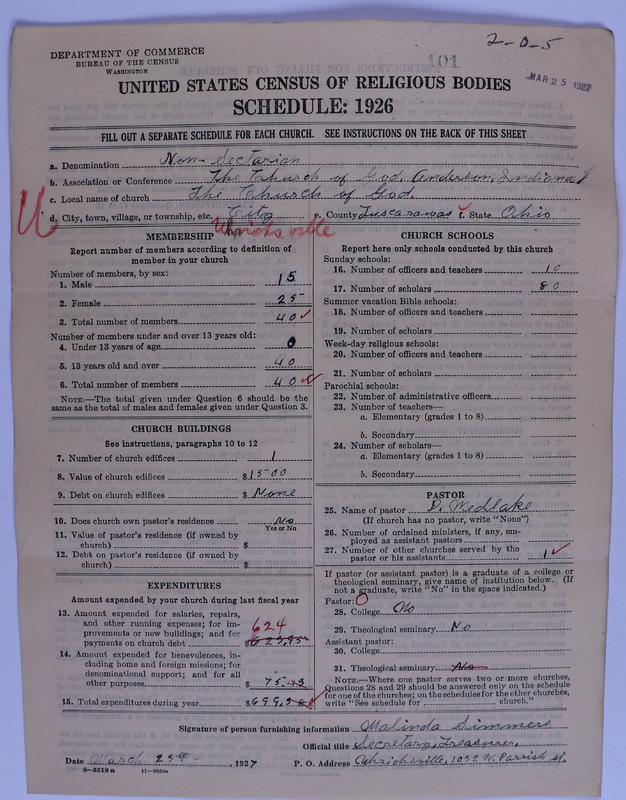 2-0-5
101
MAR 25 1927
DEPARTMENT OF COMMERCE
BUREAU OF THE CENSUS
WASHINGTON
UNITED STATES CENSUS OF RELIGIOUS BODIES
SCHEDULE: 1926
FILL OUT A SEPARATE SCHEDULE FOR EACH CHURCH. SEE INSTRUCTIONS ON THE BACK OF THIS SHEET
a. Denomination Non-Sectarian
b. Association or Conference The Church of God, Anderson, Indiana
c. Local name of church The Church of God.
d. City, town, village, or township, etc. City e. County Tuscarawas f. State Ohio
Uhrichsville
MEMBERSHIP
Report number of members according to definition of
member in your church
Number of members, by sex:
1. Male 15
2. Female 25
3. Total number of members 40
Number of members under and over 13 years old:
4. Under 13 years of age 0
5. 13 years old and over 40
6. Total number of members 40
NOTE.—The total given under Question 6 should be
same as the total of males and females given under Question 3.
CHURCH BUILDINGS
See instructions, paragraphs 10 to 12
7. Number of church edifices 1
8. Value of church edifices $1500
9. Debt on church edifices $ None
10. Does church own pastor's residence No
Yes or No
11. Value of pastor's residence (if owned by
church) $
12. Debt on pastor's residence (if owned by
church) $
EXPENDITURES
Amount expended by your church during last fiscal year
13. Amount expended for salaries, repairs,
and other running expenses; for im-
provements or new buildings; and for
payments on church debt $ 623,95
624
14. Amount expended for benevolences, in-
cluding home and foreign missions; for
denominational support; and for all
other purposes $ 75.43
15. Total expenditures during year $699,38
CHURCH SCHOOLS
Report here only schools conducted by this church
Sunday schools:
16. Number of officers and teachers 10
17. Number of scholars 80
Summer vacation Bible schools:
18. Number of officers and teachers
19. Number of scholars
Week-day religious schools:
20. Number of officers and teachers
21. Number of scholars
Parochial schools:
22. Number of administrative officers
23. Number of teachers—
a. Elementary (grades 1 to 8)
b. Secondary
24. Number of scholars—
a. Elementary (grades 1 to 8)
b. Secondary
PASTOR
25. Name of pastor D. Medlake
(If church has no pastor, write "None")
26. Number of ordained ministers, if any, em-
ployed as assistant pastors
27. Number of other churches served by the
pastor or his assistants 1
If pastor (or assistant pastor) is a graduate of a college or
theological seminary, give name of institution below. (If
not a graduate, write "No" in the space indicated.)
Pastor: O
28. College No
29. Theological seminary No
Assistant pastor:
30. College
31. Theological seminary No
NOTE.—Where one pastor serves two or more churches,
Questions 28 and 29 should be answered only on the schedule
for one of the churches; on the schedules for the other churches,
write "See schedule for church."
Signature of person furnishing information Malinda Simmers
Official title Secretary, Treasurer,
Date March 23rd, 1927 P. O. Address Uhrichsville, 1032 W. Parrish St.
8—5518 a 11—9054a